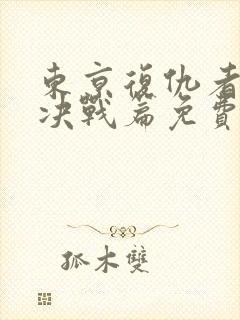 東京復仇者
决戰篇免費
孤木雙